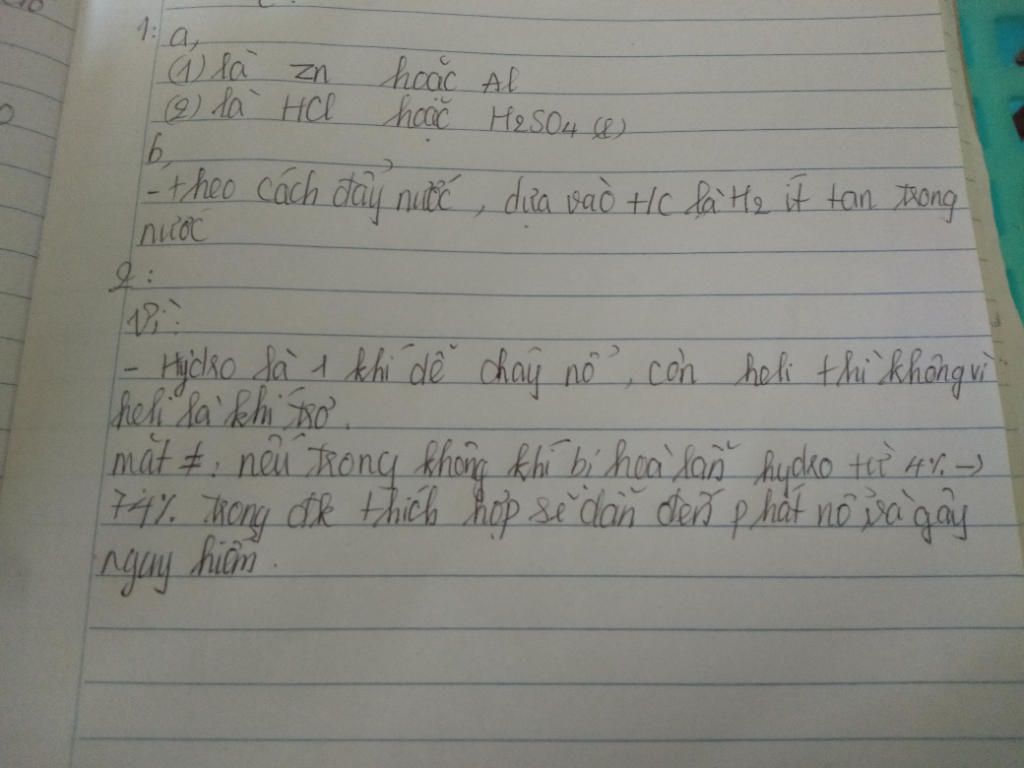 1: a,
(1) là Zn hoặc Al
(2) là HCl hoặc H2SO4 (l)
b,
- theo cách đẩy nước, dựa vào t/c là H2 ít tan trong
nước
2:
Vì:
- Hydro là 1 khí dễ cháy nổ, còn heli thì không vì
heli là khí trơ.
mặt ≠, nếu trong không khí bị hoà lẫn hydro từ 4% →
74% trong đk thích hợp sẽ dẫn đến phát nổ và gây
nguy hiểm.